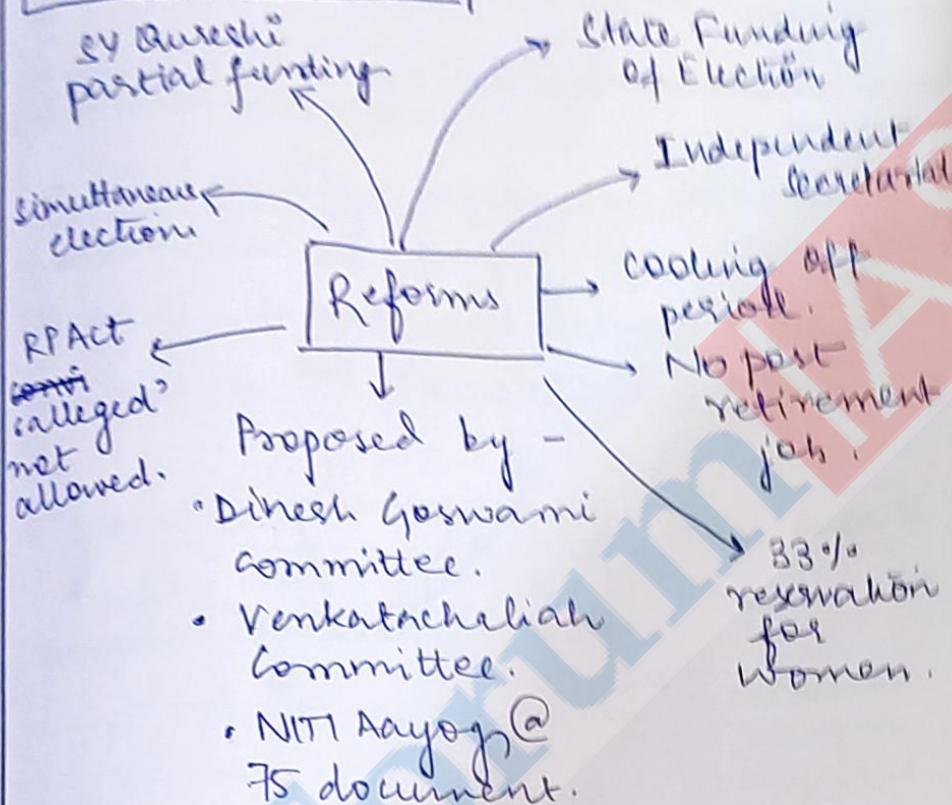 SY Qureshi
partial funding
State Funding
of Election
Independent
Secretariat
simultaneous
election.
Reforms
cooling off
period.
No post
retirement
job.
RPAct
'alleged'
not
allowed.
Proposed by -
• Dinesh Goswami
Committee.
• Venkatachaliah
Committee.
• NITI Aayog, @
75 document.
33%
reservation
for
women.
rumIAS